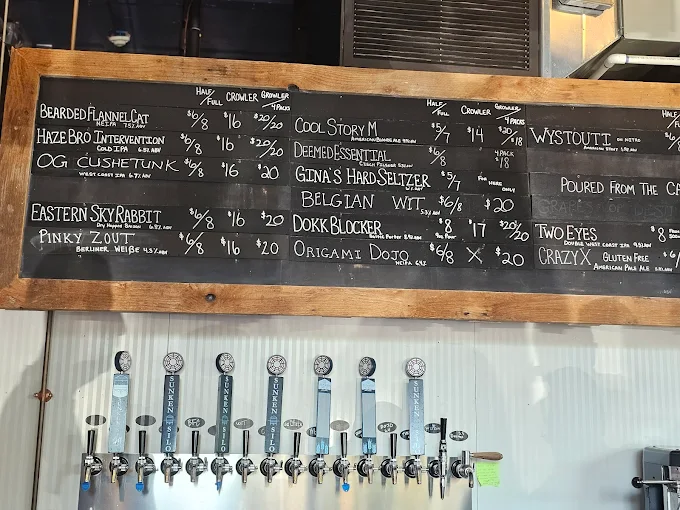 HALF/FULL CROWLER GROWLER/4 PACKS
BEARDED FLANNEL CAT $6/8 $16 $20/20
NEIPA 7.5% ABV
HAZE BRO INTERVENTION $6/8 $16 $20/20
COLD IPA
OG CUSHETUNK $6/8 $16 $20
WEST COAST IPA 6.7% ABV
EASTERN SKY RABBIT $6/8 $16 $20
Dry Hopped Saison
PINKY ZOUT $6/8 $16 $20
BERLINER WEIßE 4.3% ABV
HALF/FULL CROWLER GROWLER/4 PACKS
COOL STORY M $5/7 $14 $20/$18
AMERICAN BLONDE ALE
DEEMED ESSENTIAL $6/8 4 PACK $18
CZECH PILSNER
GINA'S HARD SELTZER $5/7 FOR HERE ONLY
BELGIAN WIT $6/8 $20
DOKK BLOCKER $8 $17 $20/20
BALTIC PORTER
ORIGAMI DOJO $6/8 X $20
NEIPA
HALF/
WYSTOUTI ON NITRO
AMERICAN STOUT
POURED FROM THE CA
TWO EYES $8
DOUBLE WEST COAST IPA
CRAZY X GLUTEN FREE $6/
AMERICAN PALE ALE
SUNKEN SILO
SUNKEN SILO
SUNKEN SILO
SUNKEN SILO
BFC